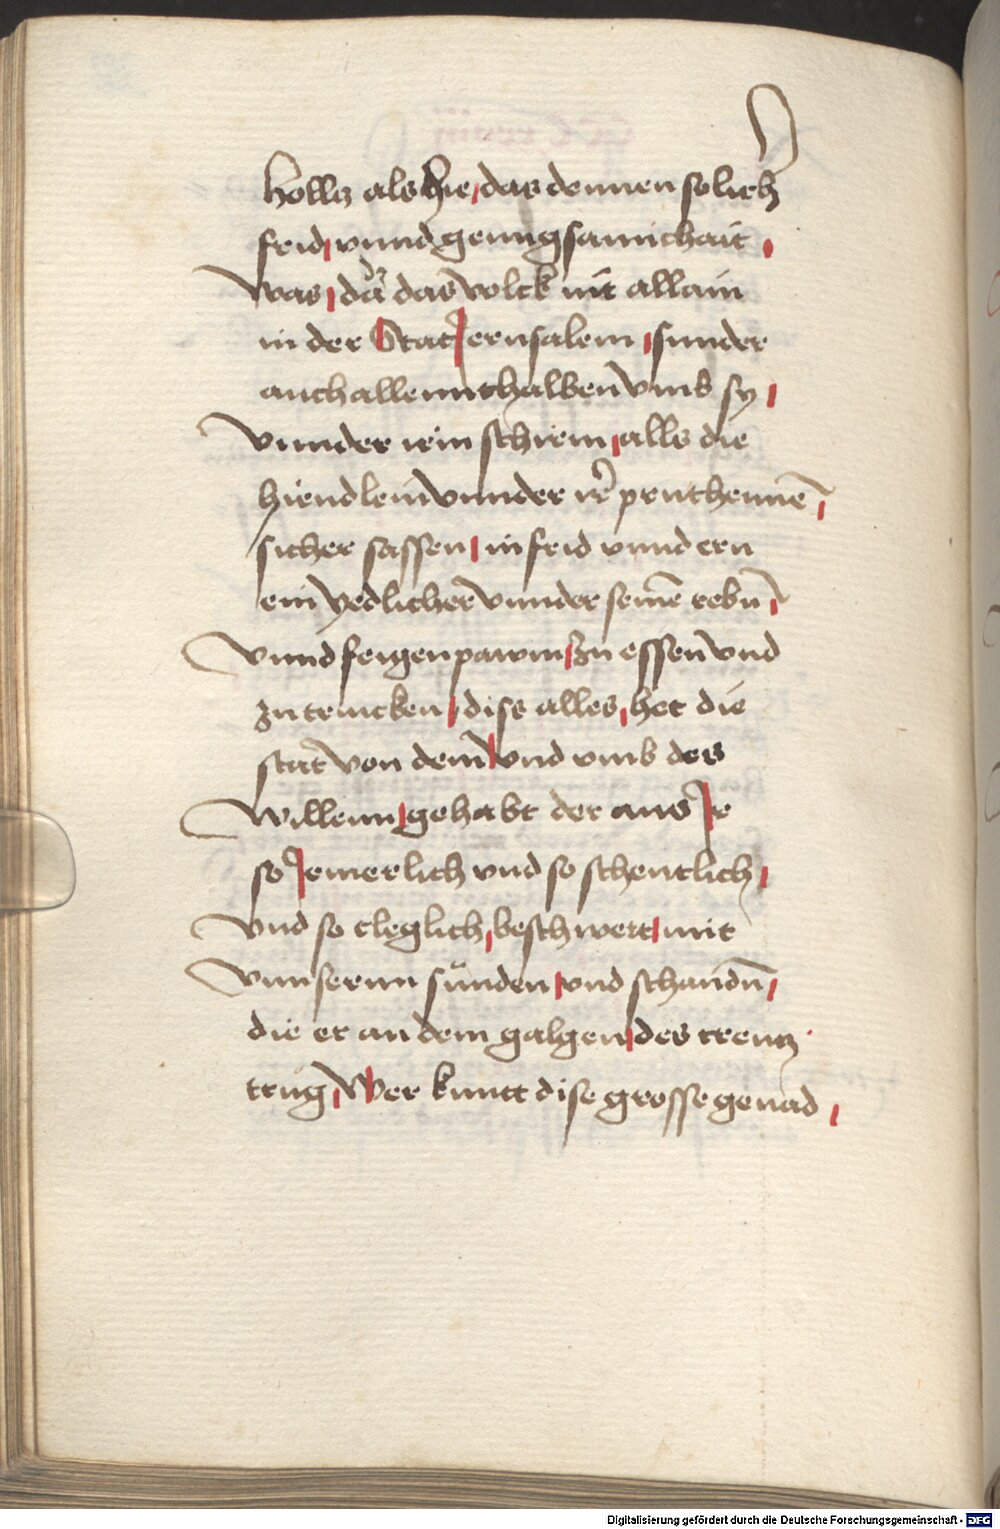 hollz als hie, das dennen solich
frid, vnnd genngsamichait,
was, da das volck nit allain
in der Stat Jerusalem, sunder
auch allennthalben vmb sy,
vnnder irin schirm, alls die
hiendlein vnnder ir̄ pruthennē,
sicher sassen, in frid vnnd ern
ein yedlicher vnnder seinē rebn̄,
vnnd feigenpawm, zu essen vnd
zu trincken, diss alles, het die
stat von dem, vnd vmb des
willenn, gehabt der aus Jr
so Jemerlich vnd so schentlich,
vnd so cleglich, beschwert, mit
vnnsernn sünden, vnd schandn̄,
die er an dem galgen, des creutz
trug, Wer kuntt dise grosse genad,
Digitalisierung gefördert durch die Deutsche Forschungsgemeinschaft - DFG